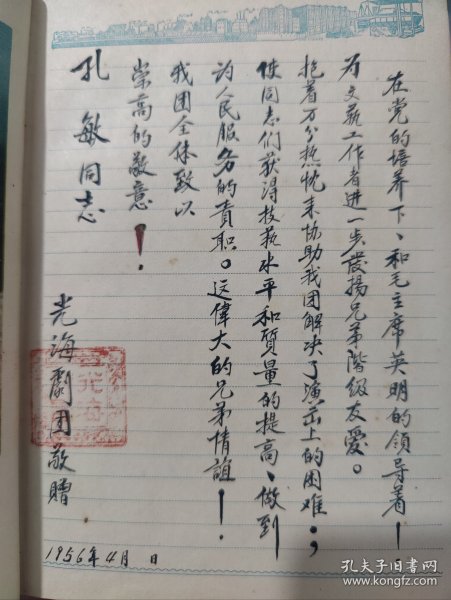 在党的培养下、和毛主席英明的领导着！
为文藝工作者进一步發揚兄弟階級友愛。
抱着万分热忱来协助我团解决了演出上的困难；
使同志们获得技藝水平和質量的提高、做到
为人民服务的責职。这偉大的兄弟情誼！
我团全体致以
崇高的敬意！
孔敏同志
光海劇团敬贈
1956年4月 日
孔夫子旧书网
book.kongfz.com